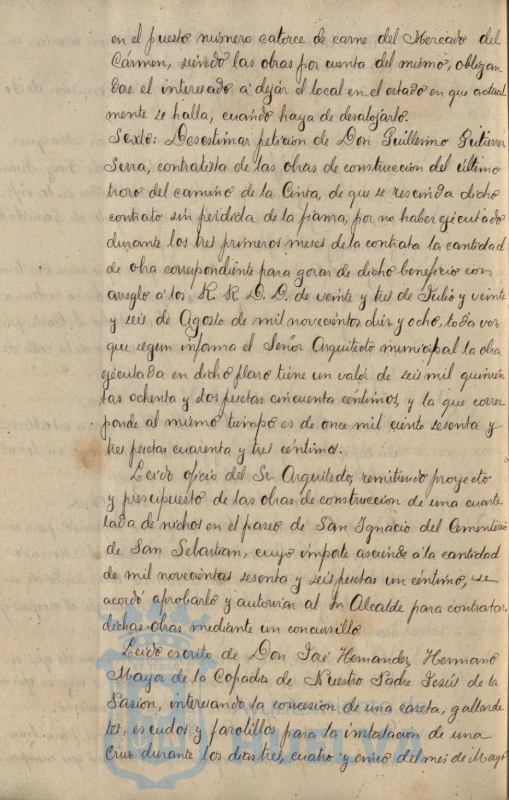 en el puesto número catorce de carne del Mercado del
Carmen, siendo las obras por cuenta del mismo, obligan
dose el interesado a dejár el local en el estado en que actual
mente se halla, cuando haya de desalojarlo.
Sexto: Desestimar petición de Don Guillermo Gutierrez
Serra, contratista de las obras de construcción del último
trozo del camino de la Cinta, de que se rescinda dicho
contrato sin perdida de la fianza, por no haber ejecutado
durante los tres primeros meses de la contrata la cantidad
de obra correspondiente para gozar de dicho beneficio con
arreglo a los R. R. D. D. de veinte y tres de Julio y veinte
y seis de Agosto de mil novecientos diez y ocho, toda vez
que segun informa el Señor Arquitecto municipal la obra
ejecutada en dicho plazo tiene un valor de seis mil quinien
tas ochenta y dos pesetas cincuenta centimos, y la que corres
ponde al mismo tiempo es de once mil ciento sesenta y
tres pesetas cuarenta y tres céntimos.
Leido oficio del Sr. Arquitecto, remitiendo proyecto
y presupuesto de las obras de construcción de una cuarte
lada de nichos en el paseo de San Ignacio del Cementerio
de San Sebastian, cuyo importe asciende a la cantidad
de mil novecientas sesenta y seis pesetas un céntimo, se
acordó aprobarlo y autorizar al Sr Alcalde para contratar
dichas obras mediante un concursillo.
Leido escrito de Don José Hernandez, Hermano
Mayor de la Cofradia de Nuestro Padre Jesús de la
Pasion, interesando la concesion de una caseta, gallarde
tes, escudos y farolillos para la instalacion de una
Cruz durante los dias tres, cuatro y cinco del mes de Mayo